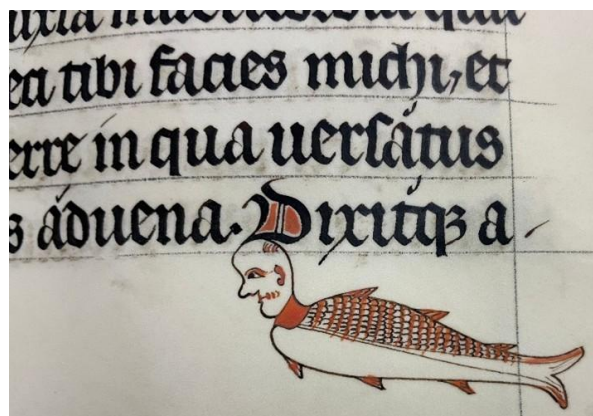 feci tibi facies michi, et
terre in qua uersatus
s aduena. Dixitqꝫ a